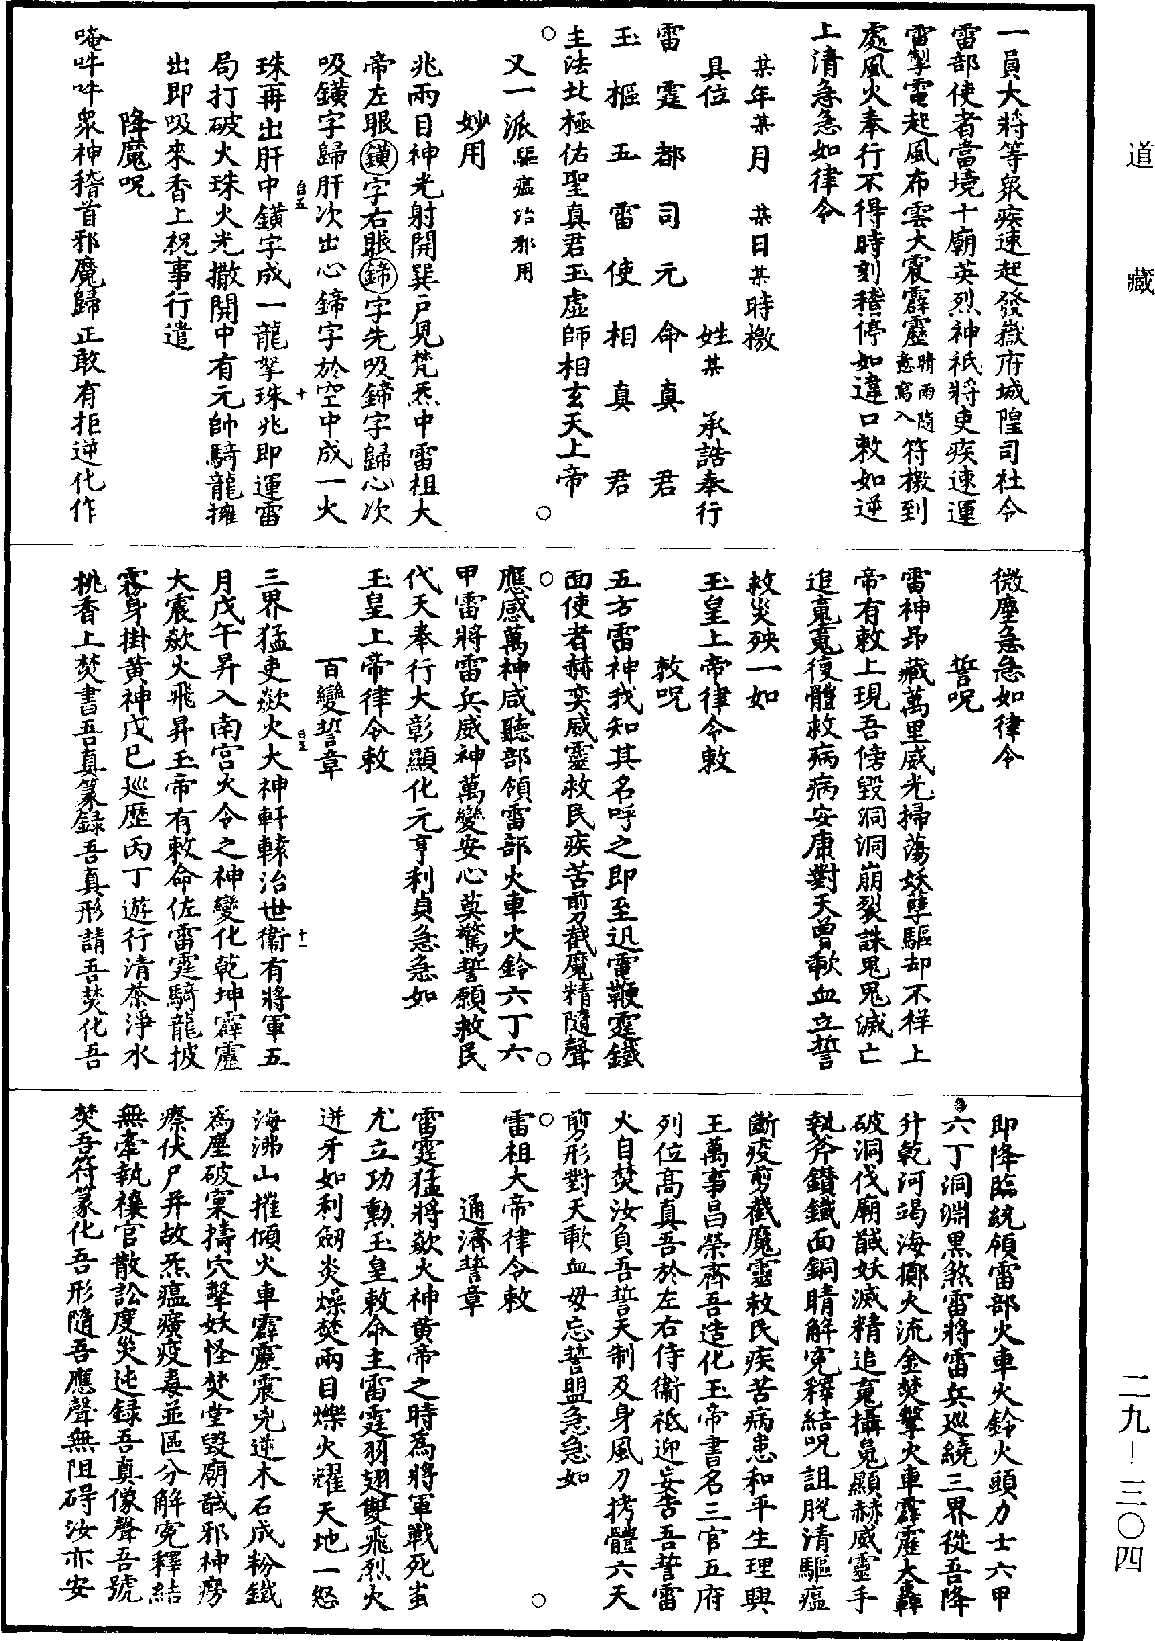 道藏
一員大將等衆疾速起發嶽府城隍司社令
雷部使者當境十廟英烈神祇將吏疾速運
雷掣電起風布雲大震霹靂晴雨隨意寫入符檄到
處風火奉行不得時刻稽停如違口敕如逆
上清急急如律令
某年某月　某日某時檄
具位　姓某　承誥奉行
雷霆都司元命真君
玉樞五雷使相真君
主法北極佑聖真君玉虛師相玄天上帝
○　○
又一派驅瘟治邪用
妙用
兆兩目神光射開巽戶見梵炁中雷祖大
帝左眼鐄字右眼鍗字先吸鍗字歸心次
吸鐄字歸肝次出心鍗字於空中成一火
珠再出肝中鐄字成一龍拏珠兆即運雷
局打破火珠火光撒開中有元帥騎龍擁
出即吸來香上祝事行遣
降魔呪
唵吽吽衆神稽首邪魔歸正敢有拒逆化作
微塵急急如律令
誓呪
雷神昂藏萬里威光掃蕩妖孽驅却不祥上
帝有敕上現吾傍毀洞洞崩裂誅鬼鬼滅亡
追䰟䰟復體救病病安康對天曾歃血立誓
救災殃一如
玉皇上帝律令敕
敕呪
五方雷神我知其名呼之即至迅電鞭霆鐵
面使者赫奕威靈救民疾苦剪截魔精隨聲
○　○
應感萬神咸聽部領雷部火車火鈴六丁六
甲雷將雷兵威神萬變安心莫驚誓願救民
代天奉行大彰顯化元亨利貞急急如
玉皇上帝律令敕
百變誓章
三界猛吏歘火大神軒轅治世衞有將軍五
月戊午昇入南宮火令之神變化乾坤霹靂
大震歘火飛昇玉帝有敕命佐雷霆騎龍披
霧身掛黃神戊巳巡歷丙丁遊行清茶淨水
桃香上焚書吾真篆録吾真形請吾焚化吾
即降臨統領雷部火車火鈴火頭力士六甲
六丁洞淵黑煞雷將雷兵巡繞三界從吾降
升乾河竭海擲火流金焚擊火車霹靂大轟
破洞伐廟馘妖滅精追䰟攝䰟顯赫威靈手
執斧鑽鐵面銅睛解寃釋結呪詛脫清驅瘟
斷疫剪截魔靈救民疾苦病患和平生理興
王萬事昌榮齎吾造化玉帝書名三官五府
列位高真吾於左右侍衞祗迎妄告吾誓雷
火自焚汝負吾誓天制及身風刀拷體六天
剪形對天歃血毋忘誓盟急急如
○　○
雷祖大帝律令敕
通濟誓章
雷霆猛將歘火神黃帝之時為將軍戰死蚩
尤立功勳玉皇敕命主雷霆羽翅雙飛烈火
迸牙如利劒炎燥焚兩目爍火耀天地一怒
海沸山摧傾火車霹靂震兇逆木石成粉鐵
為塵破窠擣穴擊妖怪焚堂毀廟馘邪神癆
瘵伏尸并故炁瘟㾮疫毒並區分解寃釋結
無牽執禳官散訟度災迍録吾真像聲吾號
焚吾符篆化吾形隨吾應聲無阻碍汝亦安
二九－三〇四